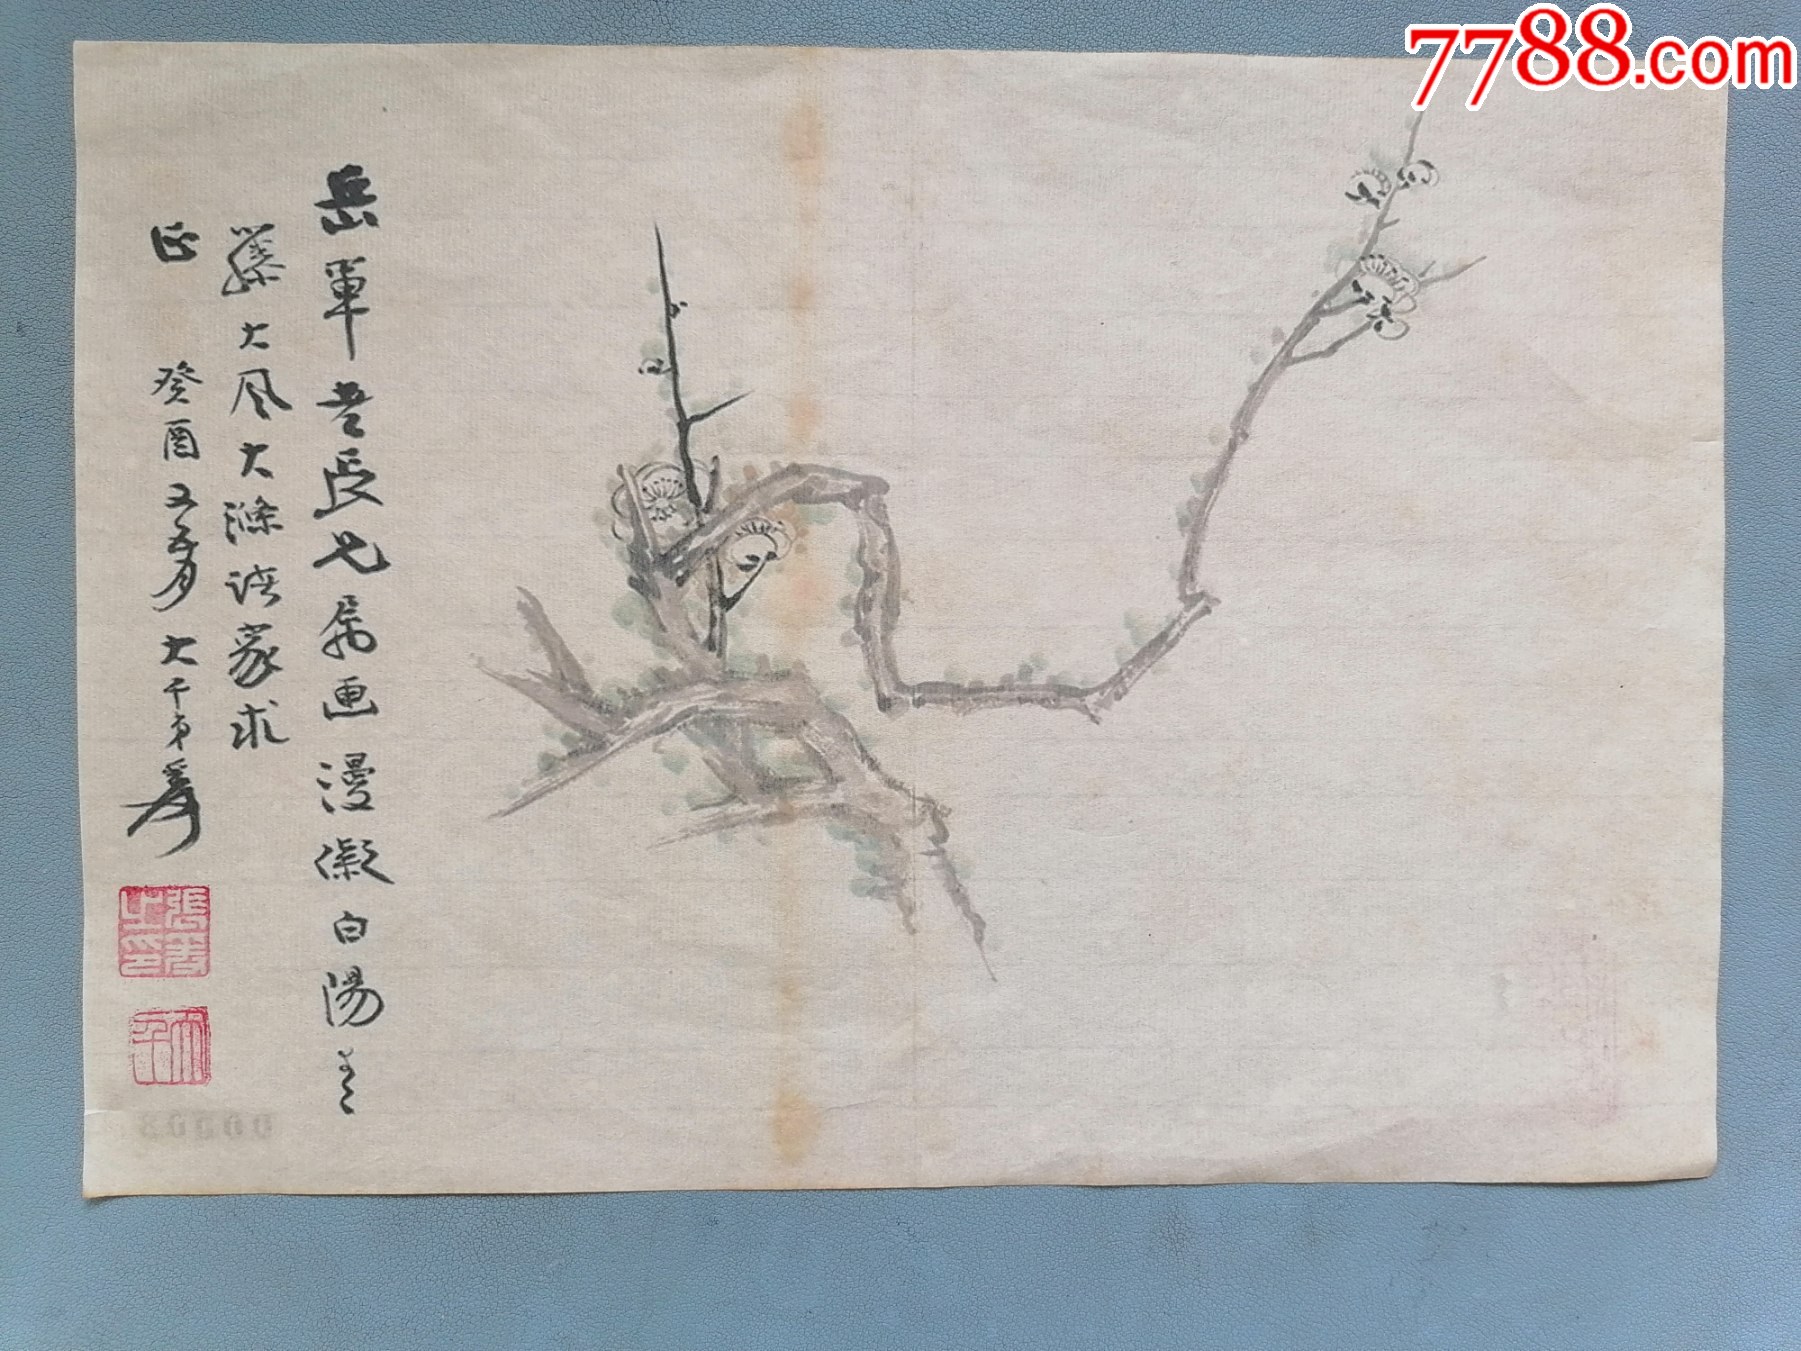 7788.com
岳軍老長兄属画漫儗白陽青
藤大風大滌諸家求
正 癸酉又五月 大千弟爰
張爰之印
大千